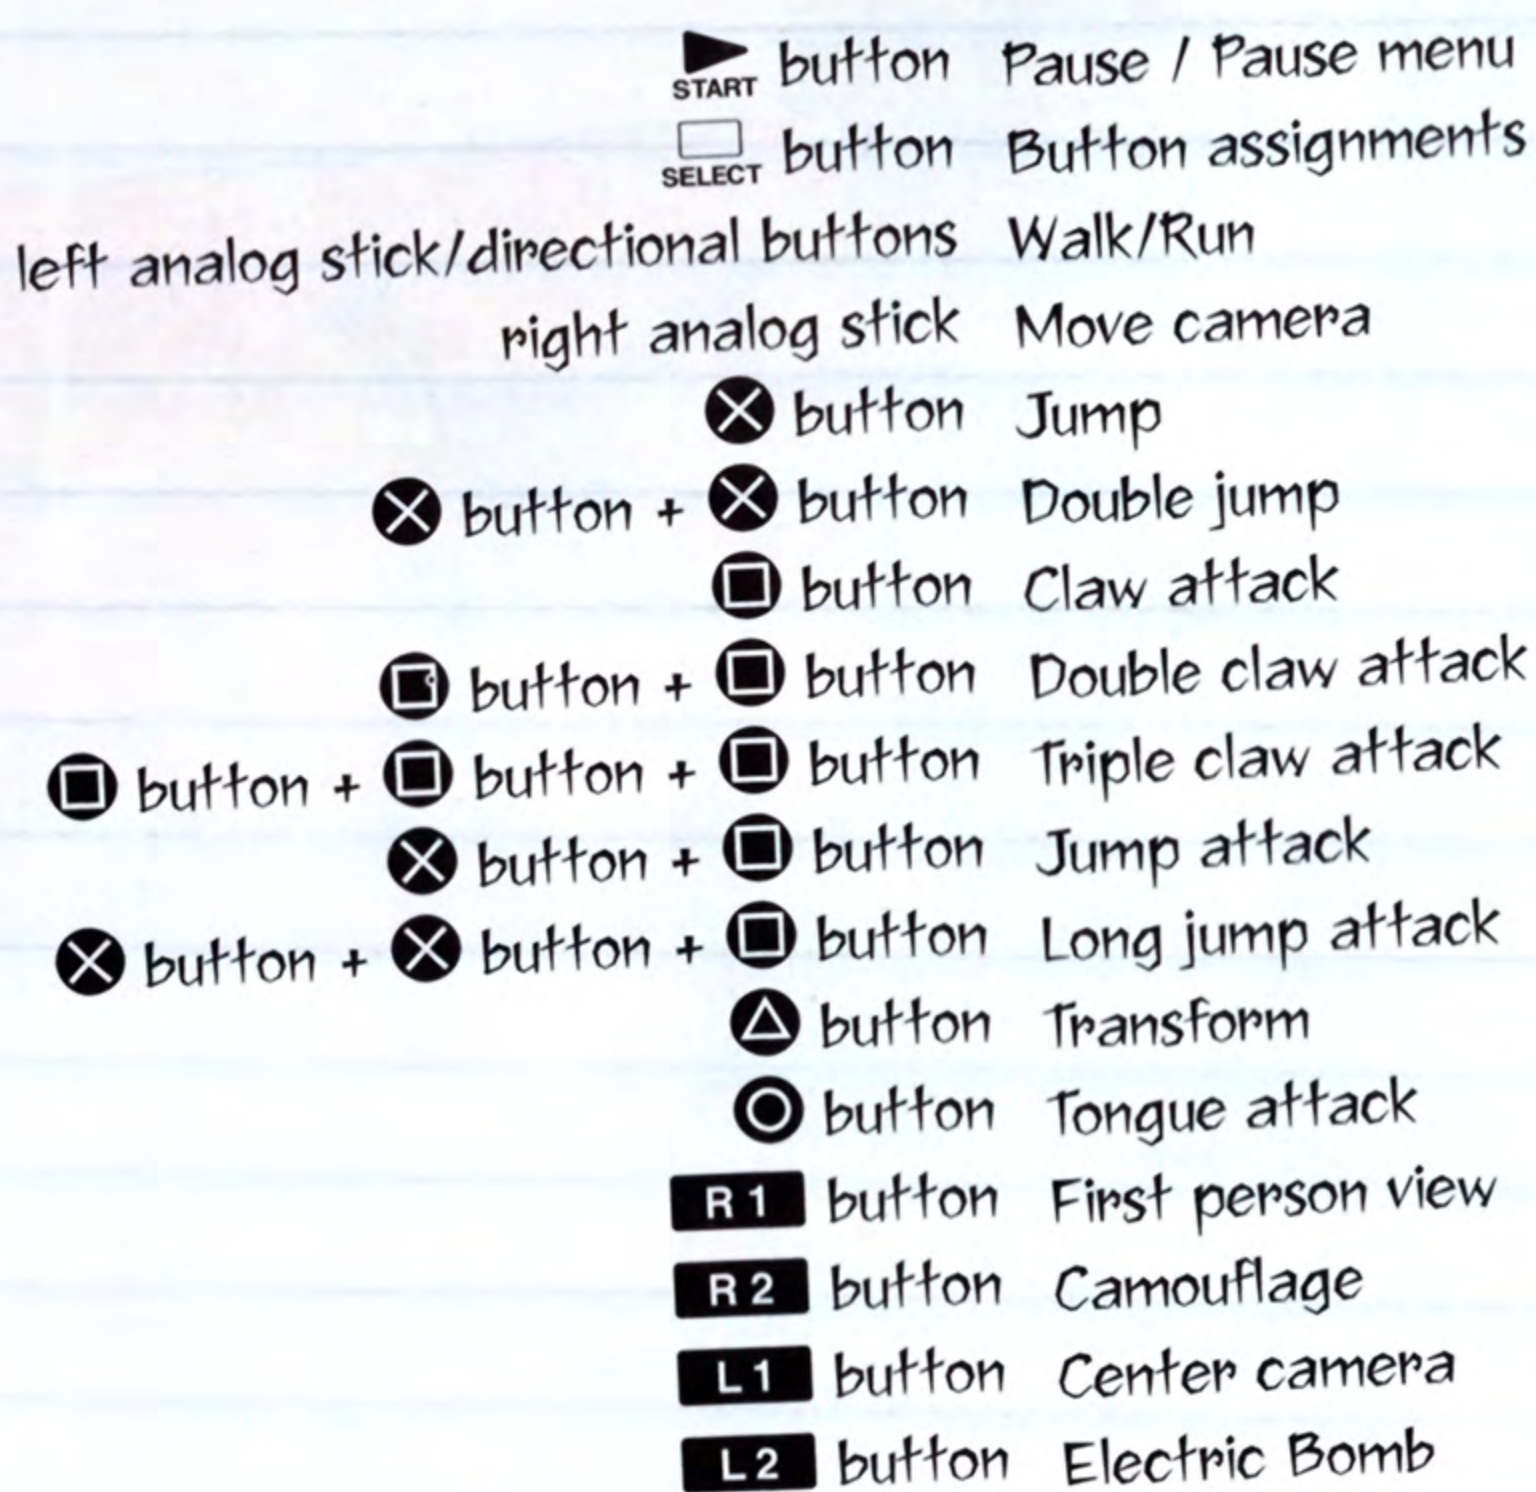 START button Pause / Pause menu
SELECT button Button assignments
left analog stick/directional buttons Walk/Run
right analog stick Move camera
button Jump
button + button Double jump
button Claw attack
button + button Double claw attack
button + button + button Triple claw attack
button + button Jump attack
button + button + button Long jump attack
button Transform
button Tongue attack
R1 button First person view
R2 button Camouflage
L1 button Center camera
L2 button Electric Bomb